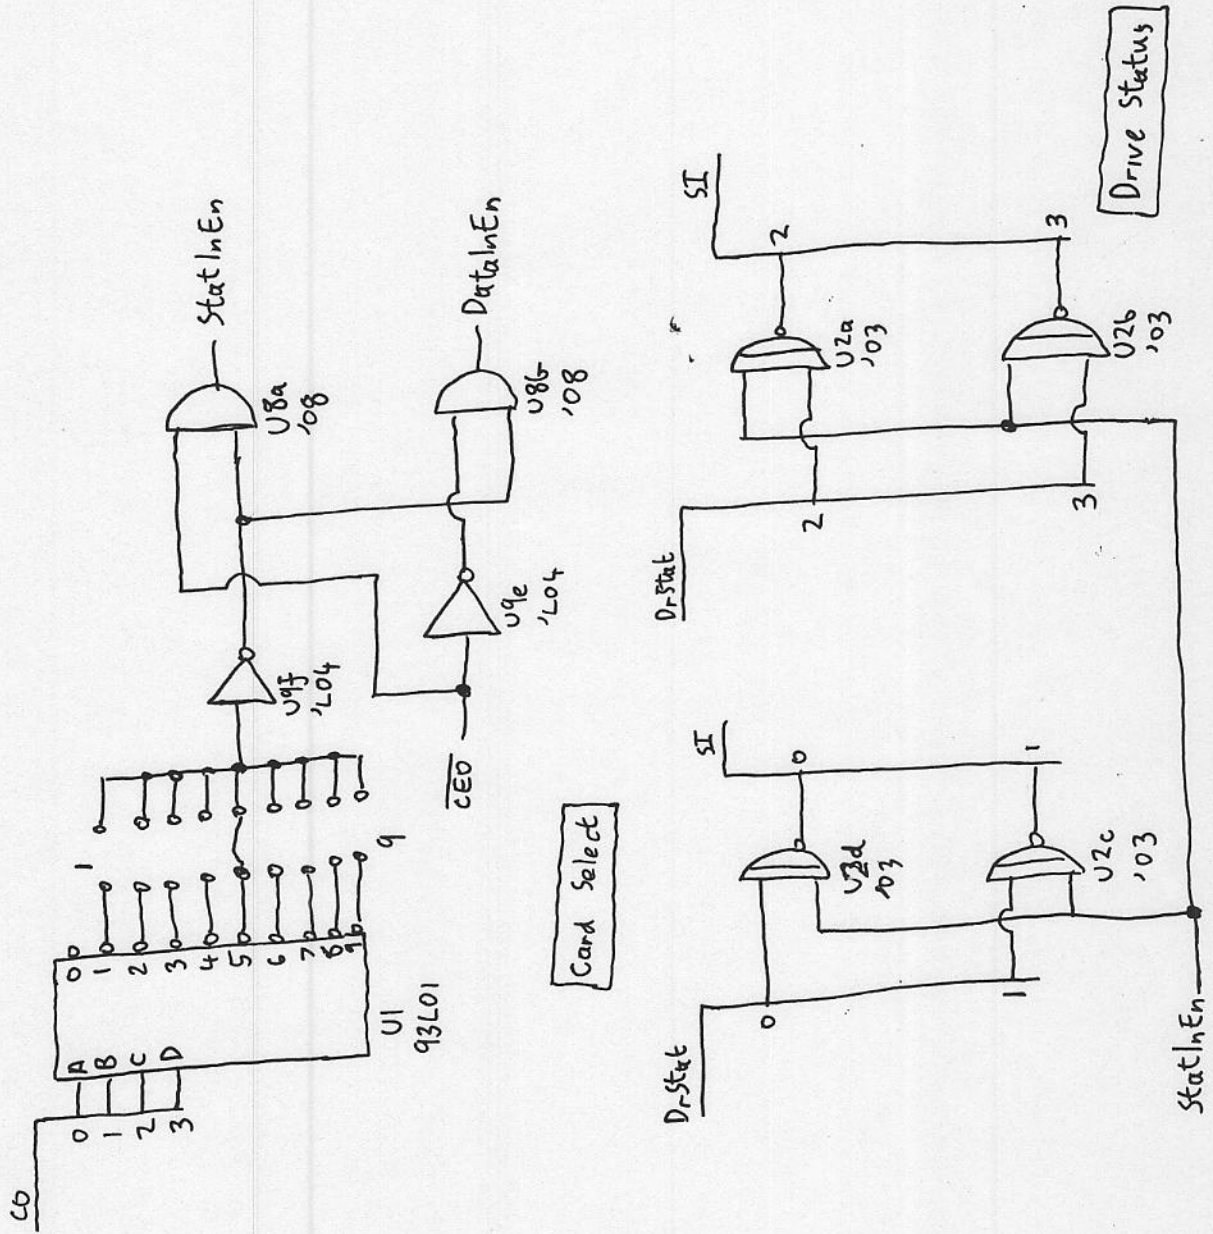 CO
0
1
2
3
A
B
C
D
0
1
2
3
4
5
6
7
8
9
U1
93L01
1
9
U9f
'L04
U8a
'08
StatInEn
CEO
U9e
'L04
U8b
'08
DataInEn
Card Select
DrStat
0
1
U2d
'03
U2c
'03
SI
0
1
DrStat
2
3
U2a
'03
U2b
'03
SI
2
3
StatInEn
Drive Status